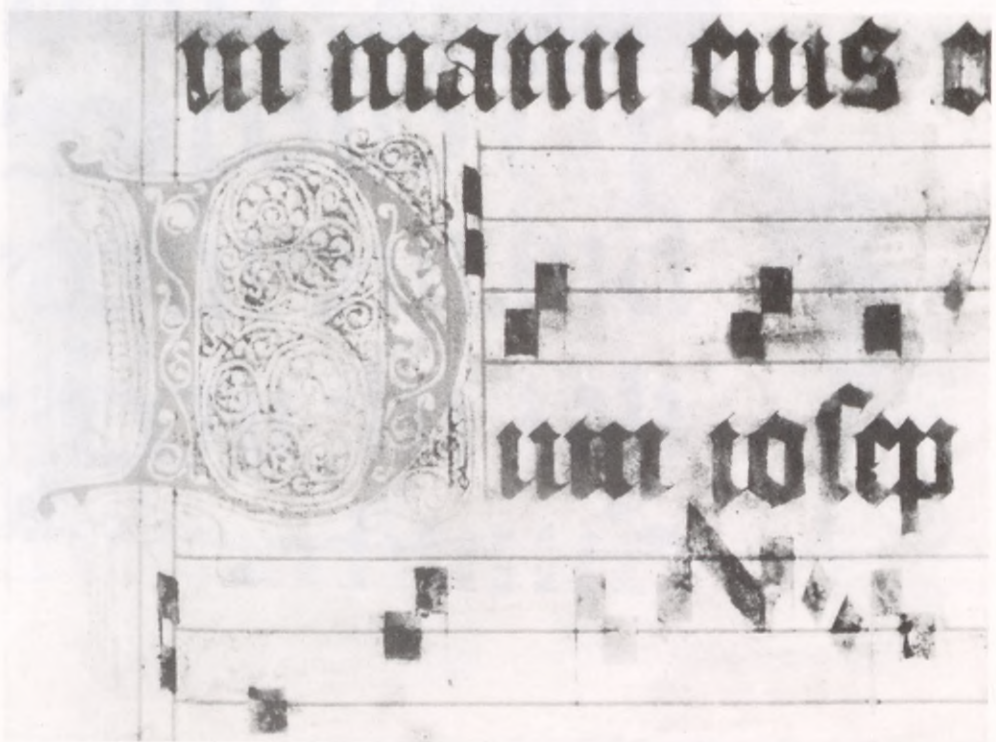 in manu eius o
Dum ioſep